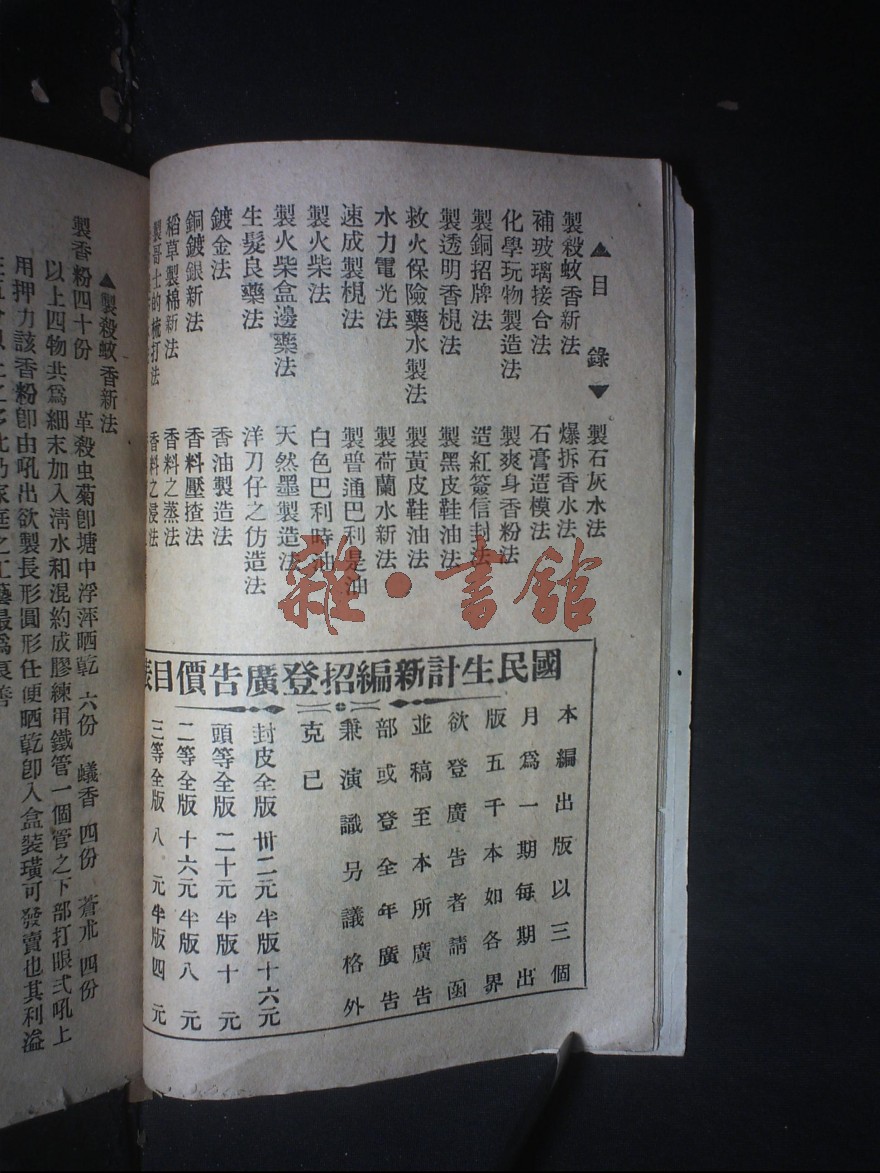 ▲目錄▼
製殺蚊香新法
補玻璃接合法
化學玩物製造法
製銅招牌法
製透明香梘法
救火保險藥水製法
水力電光法
速成製梘法
製火柴法
製火柴盒邊藥法
生髮良藥法
鍍金法
銅鍍銀新法
稻草製棉新法
製哥士的梳打法
製石灰水法
爆拆香水法
石膏造模法
製爽身香粉法
造紅簽信封法
製黑皮鞋油法
製黃皮鞋油法
製荷蘭水新法
製普通巴利是油
白色巴利時油
天然墨製造法
洋刀仔之仿造法
香油製造法
香料壓揸法
香料之蒸法
香料之浸法
雜·書館
國民生計新編招登廣告價目表
本編出版以三個
月為一期每期出
版五千本如各界
欲登廣告者請函
並稿至本所廣告
部或登全年廣告
兼演識另議格外
克已
封皮全版卅二元半版十六元
頭等全版二十元半版十元
二等全版十六元半版八元
三等全版八元半版四元
▲製殺蚊香新法
製香粉四十份 革殺虫菊卽塘中浮萍晒乾 六份 蟻香 四份 蒼朮 四份
以上四物共爲細末加入淸水和混約成膠練用鐵管一個管之下部打眼弍吼上
用押力該香粉卽由吼出欲製長形圓形任便晒乾卽入盒裝璜可發賣也其利溢